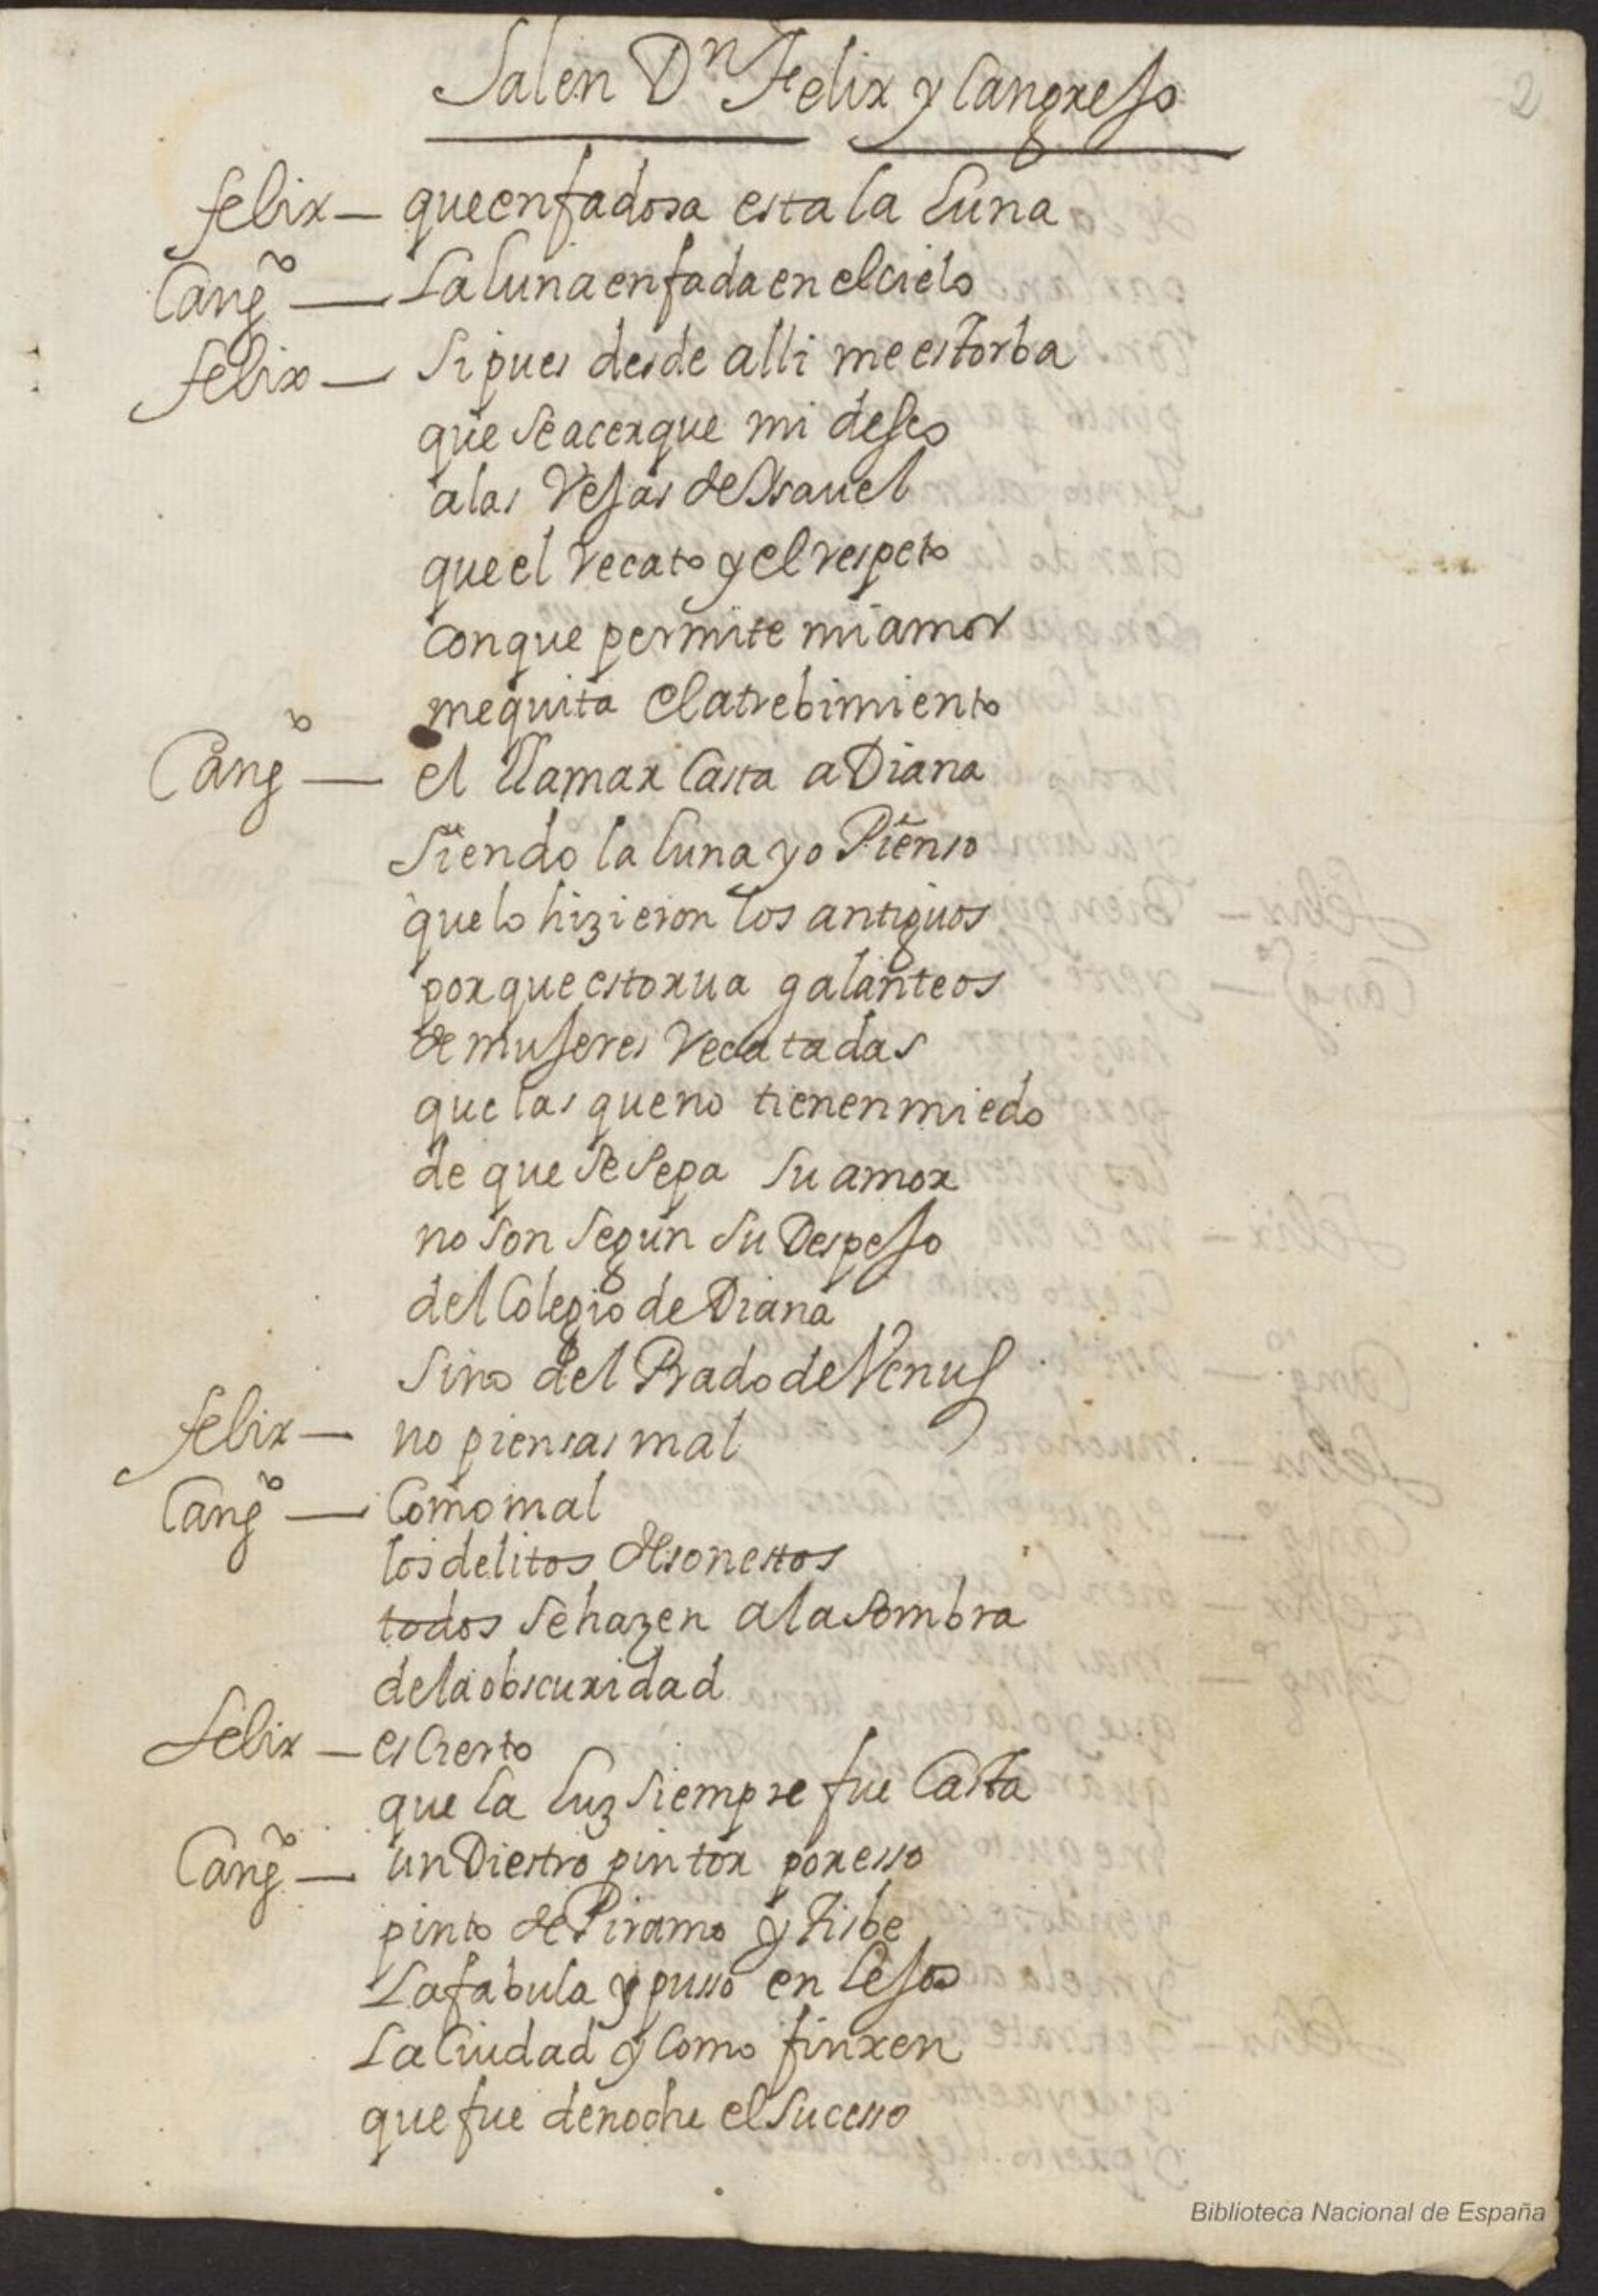 2
Salen Dn Felix y Cangrejo
felix — que enfadosa esta la Luna
Cango — La luna enfada en el cielo
felix — Si pues desde alli me estorba
que se acerque mi deseo
a las Rejas de Ysauel
que el recato y el respeto
con que permite mi amor
me quita el atrebimiento
Cango — el llamar Casta a Diana
Siendo la luna yo Pienso
que lo hizieron los antiguos
porque estorua galanteos
de mujeres Recatadas
que las que no tienen miedo
de que se sepa su amor
no son segun su Despejo
del Colegio de Diana
sino del Prado de Venus
felix — no piensas mal
Cango — Como mal
los delitos desonestos
todos se hazen a la sombra
de la obscuridad
felix — es Cierto
que la luz siempre fue Casta
Cango — un Diestro pintor por esso
pinto de Piramo y Tisbe
La fabula y pusso en lejos
La Ciudad y Como finxen
que fue de noche el Sucesso
Biblioteca Nacional de España